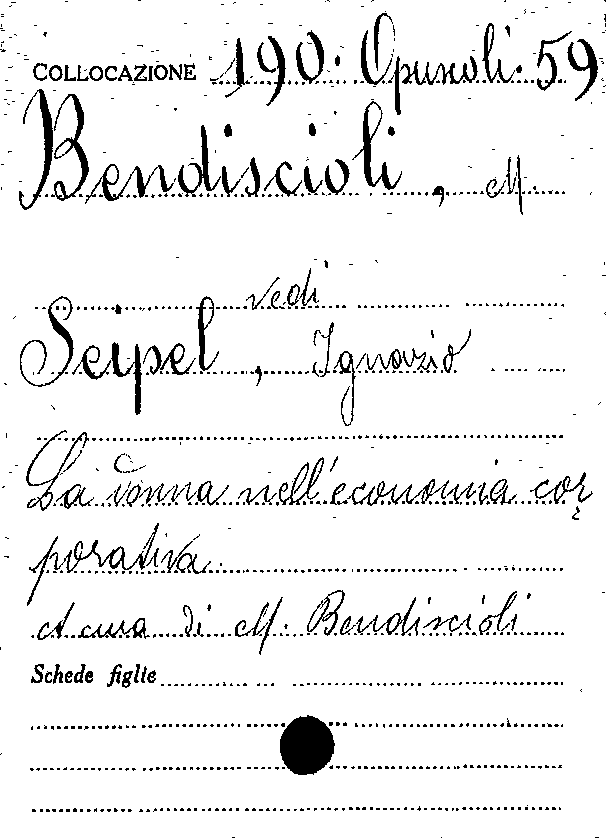 COLLOCAZIONE 190. Opuscoli. 59
Bendiscioli, M.
vedi
Seipel, Ignazio
La donna nell'economia cor
porativa
A cura di M. Bendiscioli
Schede figlie